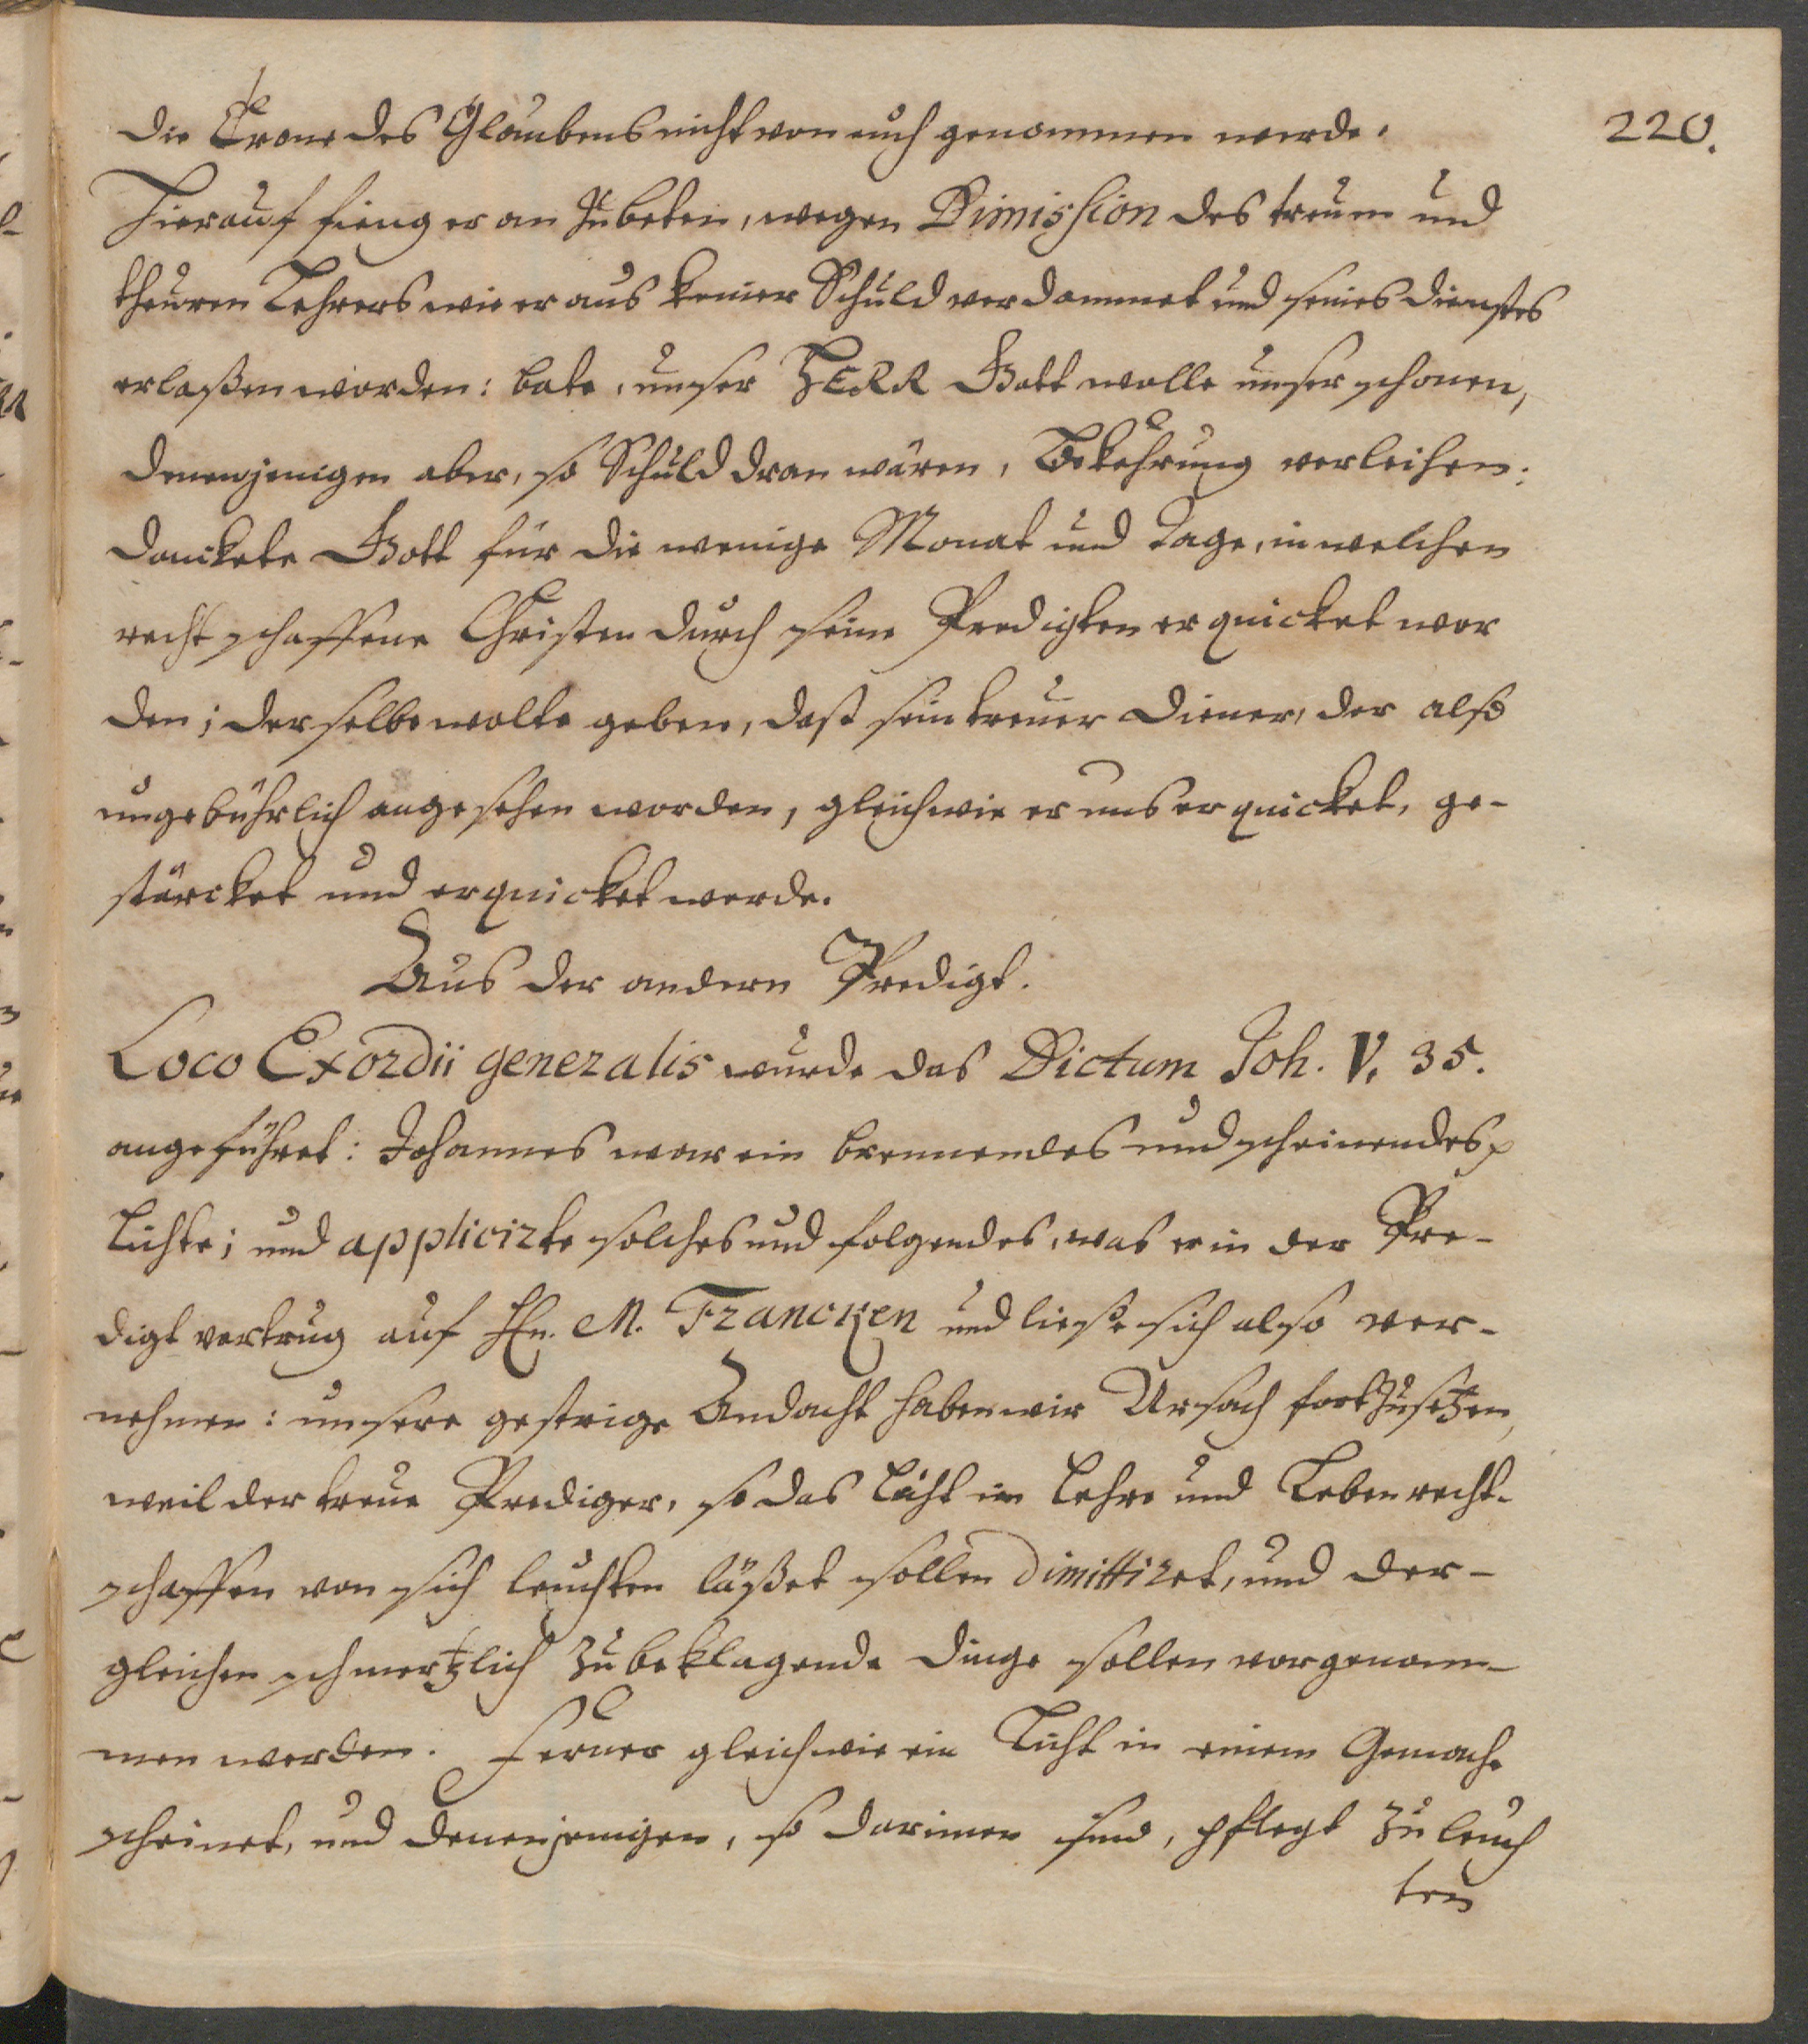 220.
die Crone des Glaubens nicht von euch genommen werde.
Hierauf fieng er an zu beten, wegen Dimission des treuen und
theuren Lehrers wie er aus keiner Schuld verdammet und seines Dienstes
erlaßen worden: bate, unser HERR Gott wolle unser schonen,
denenjenigen aber, so Schuld dran wären, Bekehrung verleihen:
danckete Gott für die wenige Monat und Tage, in welchen
rechtschaffene Christen durch seine Predigten erquicket wor
den; derselbe wolte geben, daß sein treuer Diener, der also
ungebührlich angesehen worden, gleichwie er uns erquicket, ge-
stärcket und erquicket werde.
Aus der andern Predigt.
Loco Exordii generalis wurde das Dictum Joh. V. 35.
angeführet: Johannes war ein brennendes und scheinendes
Lichte; und applicirte solches und folgendes, was er in der Pre-
digt vortrug auf Hn. M. Francken und ließe sich also ver-
nehmen: unsere gestrige Andacht haben wir Ursach fortzusetzen,
weil der treue Prediger, so das Licht im Lehre und Leben recht-
schaffen von sich leuchten läßet sollen dimittiret, und der-
gleichen schmertzlich zu beklagende Dinge sollen vorgenom-
men werden. Ferner gleichwie ein Licht in einem Gemache
scheinet, und denenjenigen, so darinnen sind, pflegt zu leuch
ten